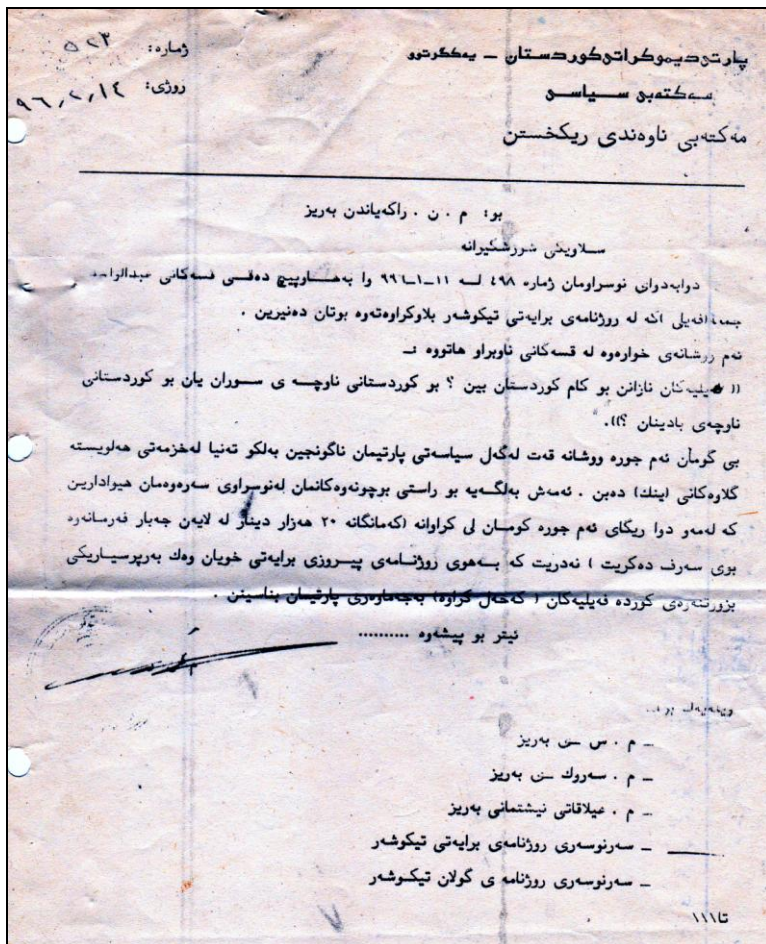 پارتی دیموکراتی کوردستان ــ یەکگرتوو
مەکتەبی سیاسی
مەکتەبی ناوەندی ریکخستن
ژمارە: ٥٢٣
روژی: ٩٦،٢،١٤
بو: م . ن . راگەیاندن بەریز
سلاویکی شورشگیرانە
دوابەدوای نوسراومان ژمارە ٤٩٨ لە ١١ــ١ــ٩٩٦ وا بەهاوپیچ دەقی قسەکانی
جمعە فەیلی کە لە روژنامەی برایەتی تیکوشەر بلاوکراوەتەوە بوتان دەنیرین .
ئەم ووشانەی خوارەوە لە قسەکانی ناوبراو هاتووە :ــ
(( فەیلیەکان نازانن بو کام کوردستان بین ؟ بو کوردستانی ناوچە ی سوران یان بو کوردستانی
ناوچەی بادینان ؟)).
بی گومان ئەم جورە ووشانە قەت لەگەل سیاسەتی پارتیمان ناگونجین بەلکو تەنیا لەخزمەتی هەلویستە
گلاوەکانی (ینك) دەبن . ئەمەش بەلگەیە بو راستی بوچونەوەکانمان لەنوسراوی سەرەوەمان هیوادارین
کە لەمەو دوا ریگای ئەم جورە گومان لی کراوانە (کەمانگانە ٢٠ هەزار دینار لە لایەن جەبار فەرمانەوە
بوی سەرف دەکریت ) نەدریت کە بەهوی روژنامەی پیروزی برایەتی خویان وەك بەرپرسیاریکی
بزورتنەرەی کوردە فەیلیەکان ( کەحەل کراوە) بەجەماوەری پارتیمان بناسینن .
ئیتر بو پیشەوە ..........
وینەیەك بو
ــ م . س ــی بەریز
ــ م . سەروك ــی بەریز
ــ م . عیلاقاتی نیشتمانی بەریز
ــ سەرنوسەری روژنامەی برایەتی تیکوشەر
ــ سەرنوسەری روژنامە ی گولان تیکوشەر
تا١١١